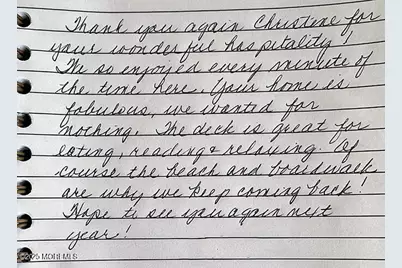 Thank you again Christine for
your wonderful hospitality!
We so enjoyed every minute of
the time here. Your home is
fabulous, we wanted for
nothing. The deck is great for
eating, reading & relaxing. Of
course the beach and boardwalk
are why we keep coming back!
Hope to see you again next
year!
© 2025 MORI MLS